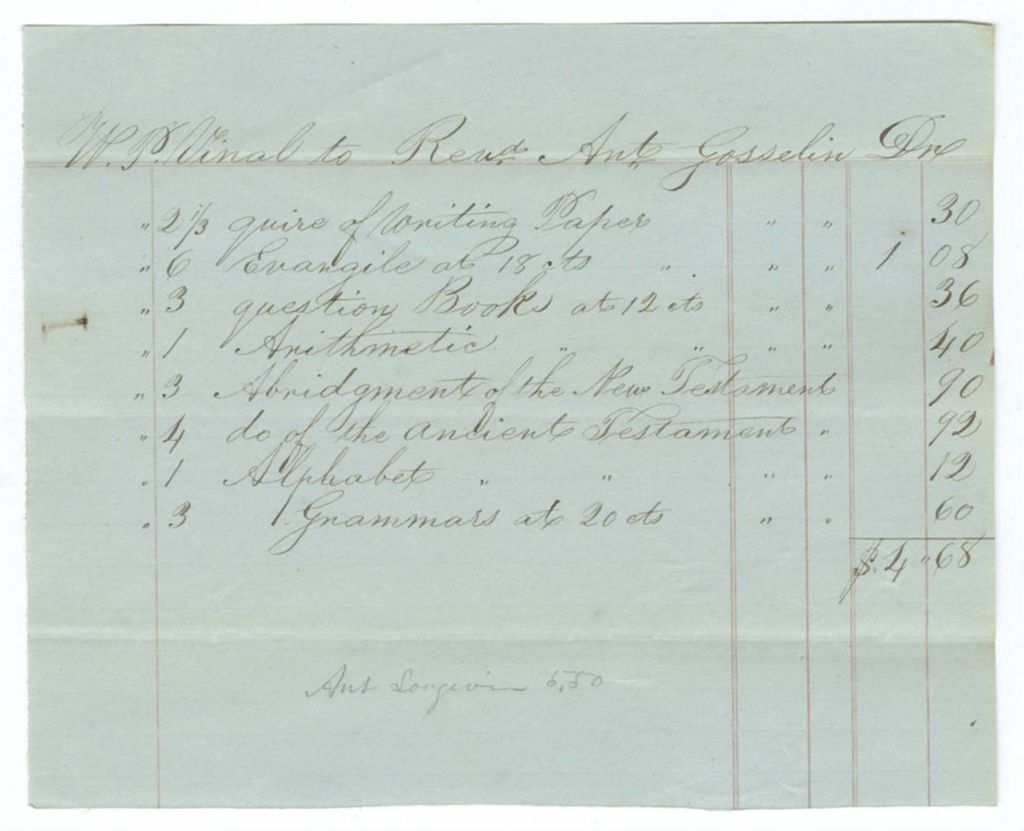 W. P. Vinal to Revd. Ant. Gosselin Dr
" 2 1/3 quire of Writing Paper " " 30
" 6 Evangile at 18 cts " " " 1 08
" 3 question Books at 12 cts " " 36
" 1 Arithmetic " " " " 40
" 3 Abridgment of the New Testament 90
" 4 do of the Ancient Testament " 92
" 1 Alphabet " " " " 12
" 3 Grammars at 20 cts " " 60
$. 4 " 68
Ant 5,50